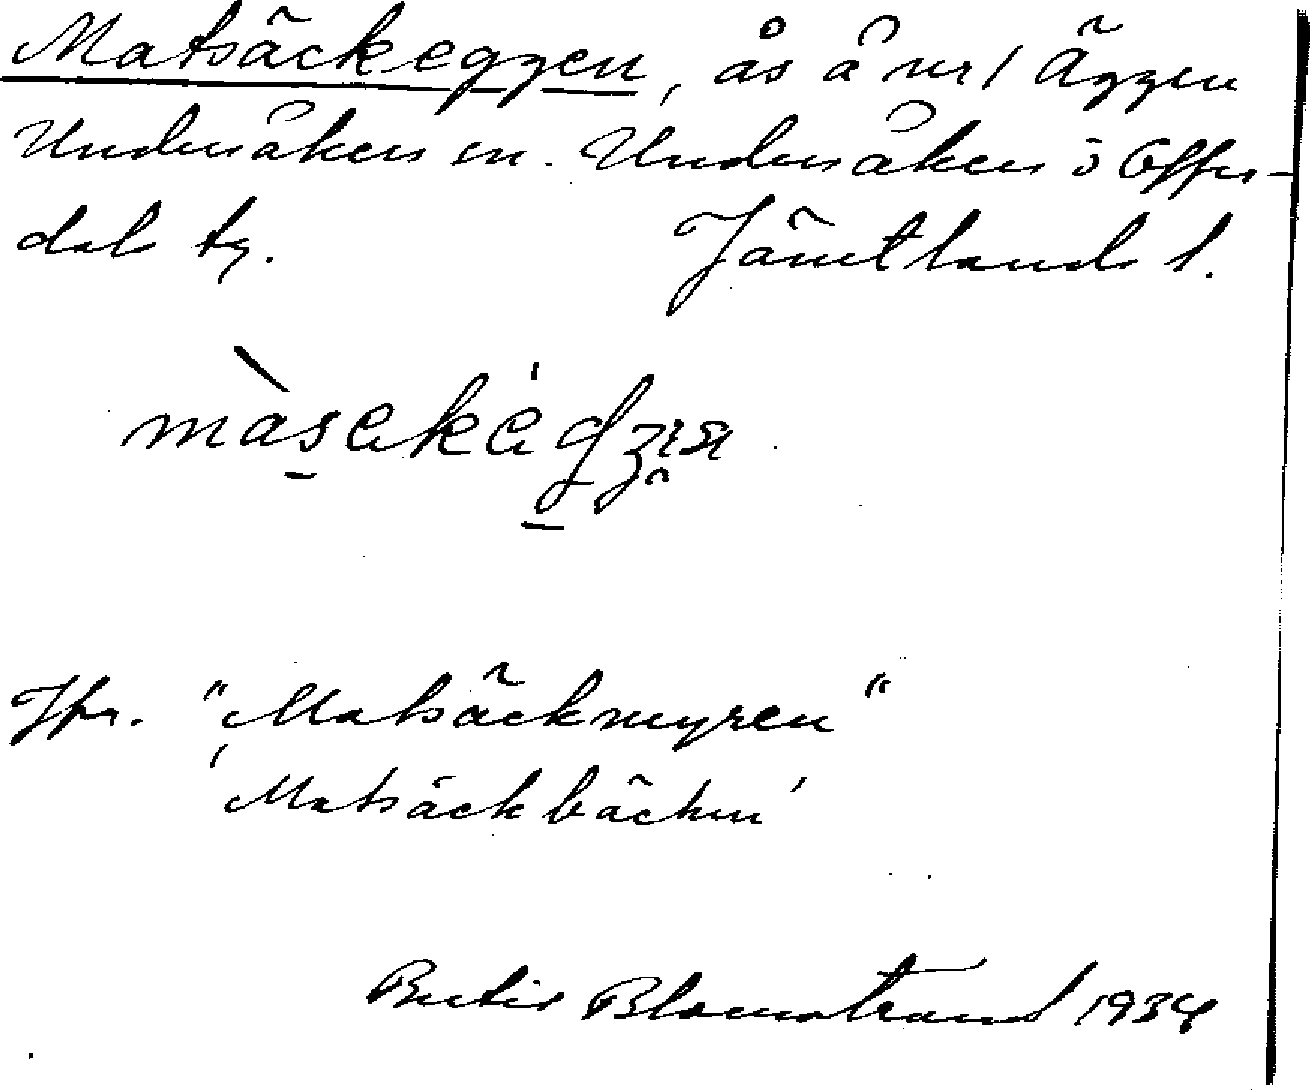 Matsäckeggen, ås å nr 1 Äggen
Undersåkers sn. Undersåkers o Offer-
dals tg. Jämtlands l.
Jfr. "Matsäckmyren"
'Matsäckbäcken'
Bertil Blomstrand 1934